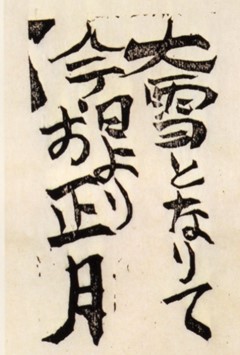 大雪となりて
今日よりお正月